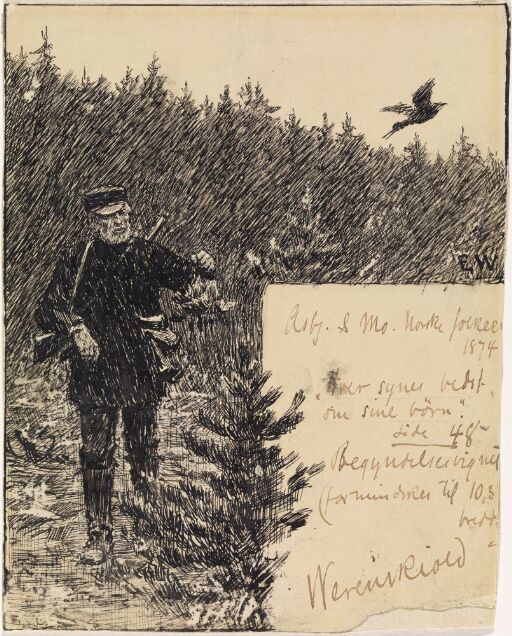 EW
Asbj. & Mo. Norske folkeev
1874
"Hver synes bedst
om sine börn".
side 48
Begyndelsesvignet
(formindskes til 10,3
bredd.
Werenskiold